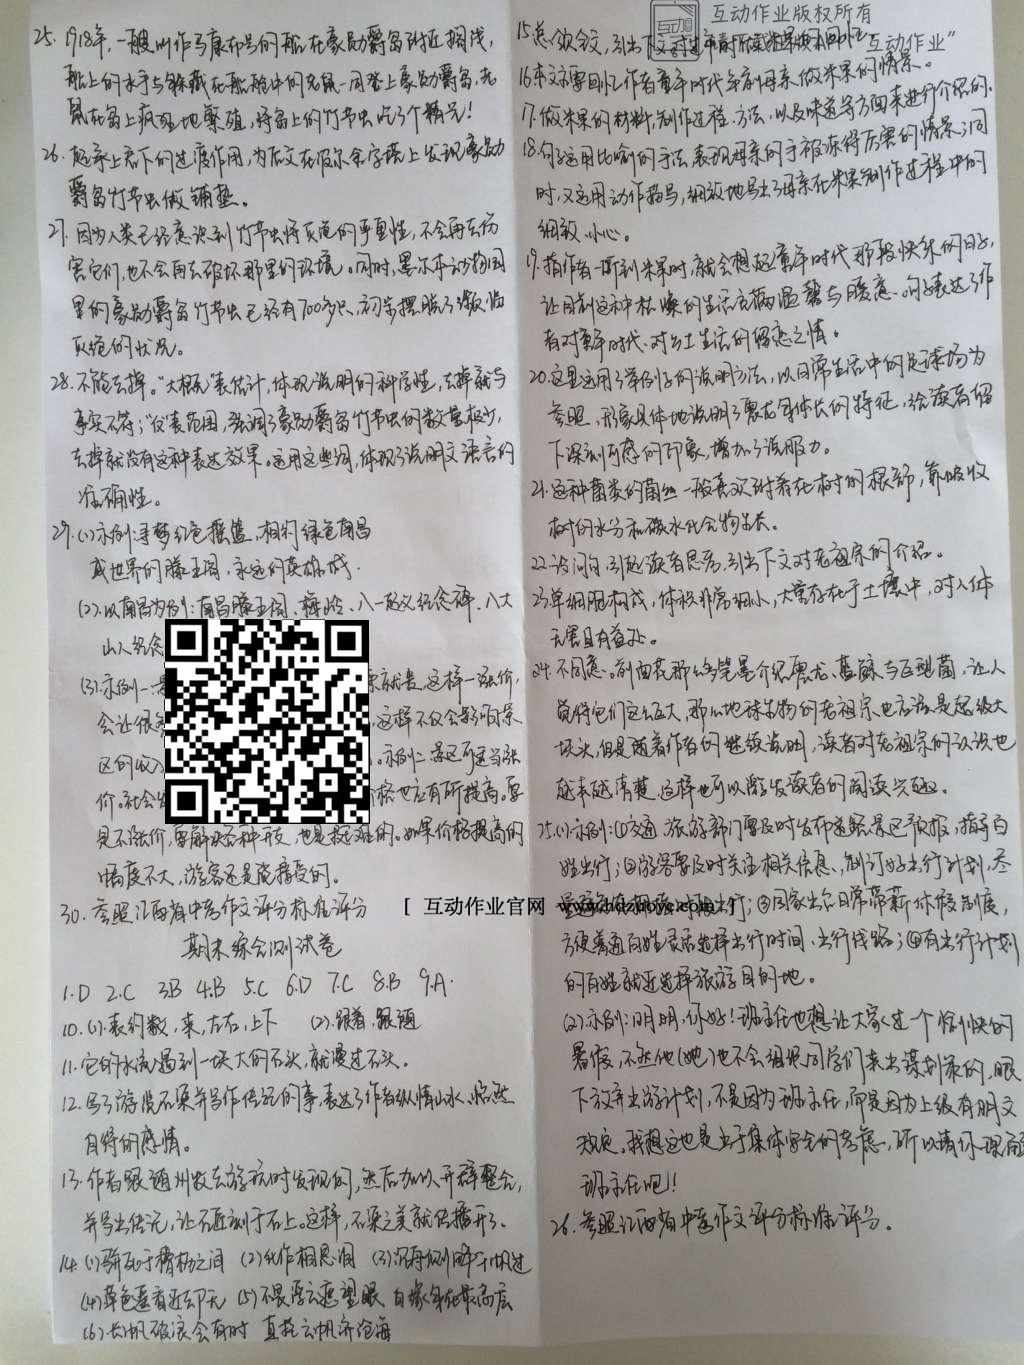 25. 1918年，一艘叫作马康布号的船在豪勋爵岛附近搁浅，
船上的水手与躲藏在船舱中的老鼠一同登上豪勋爵岛，老
鼠在岛上疯狂地繁殖，将岛上的竹节虫吃了个精光！
26. 起承上启下的过渡作用，为后文在波尔金字塔上发现豪勋
爵岛竹节虫做铺垫。
27. 因为人类已经意识到竹节虫将灭绝的严重性，不会再去伤
害它们，也不会再去破坏那里的环境。同时，墨尔本动物园
里的豪勋爵岛竹节虫已经有700多只，初步摆脱了濒临
灭绝的状况。
28. 不能去掉。“大概”表估计，体现说明的科学性，去掉就与
事实不符；“仅”表范围，强调了豪勋爵岛竹节虫的数量极少，
去掉就没有这种表达效果。运用这些词，体现了说明文语言的
准确性。
29. (1)示例：寻梦红色摇篮，相约绿色南昌
或世界的滕王阁，永远的英雄城.
(2).以南昌为例：南昌滕王阁、梅岭、八一起义纪念碑、八大
山人纪念
(3).示例一：景 票就贵，这样一涨价，
会让很多 ，这样不仅会影响景
区的收入 。示例二：景区可适当涨
价。社会 价格也应有所提高。要
是不涨价，要解决各种开支，也是挺难的。如果价格提高的
幅度不大，游客还是能接受的。
30. 参照江西省中考作文评分标准评分
期末综合测试卷
1.D 2.C 3.B 4.B 5.C 6.D 7.C 8.B 9.A.
10. (1).表约数，来，左右，上下 (2).跟着，跟随
11. 它的水流遇到一块大的石头，就漫过石头。
12. 写了游览石渠并写作传记的事，表达了作者纵情山水、怡然
自得的感情。
13. 作者跟随州牧去游玩时发现的，然后加以开辟整合，
并写出传记，让石匠刻于石上。这样，石渠之美就传播开了。
14. (1)骈死于槽枥之间 (2)化作相思泪 (3)沉舟侧畔千帆过
(4)草色遥看近却无 (5)不畏浮云遮望眼 自缘身在最高层
(6).长风破浪会有时 直挂云帆济沧海
互动作业版权所有
互动
“互动作业”
15. 总领全文，引出下文对
16. 本文主要回忆作者童年时代年前母亲做米果的情景。
17. 做米果的材料，制作过程、方法，以及味道等方面来进行介绍的.
18. 句子运用比喻的手法，表现母亲的手被冻得厉害的情景；同
时，又运用动作描写，细致地写出了母亲在米果制作过程中的
细致、小心。
19. 指作者一听到米果时，就会想起童年时代那段快乐的日子，
让目前这种枯燥的生活充满温馨与暖意。句子表达了作
者对童年时代、对乡土生活的留恋之情。
20. 这里运用了举例子的说明方法，以日常生活中的足球场为
参照，形象具体地说明了恐龙身体长的特征，给读者留
下深刻可感的印象，增加了说服力。
21. 这种菌类的菌丝一般喜欢附着在树的根部，靠吸收
树的水分和碳水化合物生长。
22. 设问句，引起读者思考，引出下文对老祖宗的介绍。
23. 单细胞构成，体积非常细小，大量存在于土壤中，对人体
无害且有益处。
24. 不同意。前面花那么多笔墨介绍恐龙、蓝鲸与巨型菌，让人
觉得它们这么巨大，那么地球生物的老祖宗也应该是超级大
块头，但是随着作者的继续说明，读者对老祖宗的认识也
越来越清楚，这样也可以激发读者的阅读兴趣。
25. (1)示例：①交通、旅游部门要及时发布道路、景区预报，指导百
姓出行；②游客要及时关注相关信息，制订好出行计划，尽
[ 互动作业官网 www.hdzuoye.com ]
出行；③国家出台日常带薪休假制度，
方便普通百姓灵活选择出行时间、出行线路；④有出行计划
的百姓就近选择旅游目的地。
(2)示例：明明，你好！班主任也想让大家过一个愉快的
暑假，不然他(她)也不会组织同学们来出谋划策的，眼
下放弃出游计划，不是因为班主任，而是因为上级有明文
规定，我想这也是出于集体安全的考虑，所以请你理解
班主任吧！
26. 参照江西省中考作文评分标准评分。